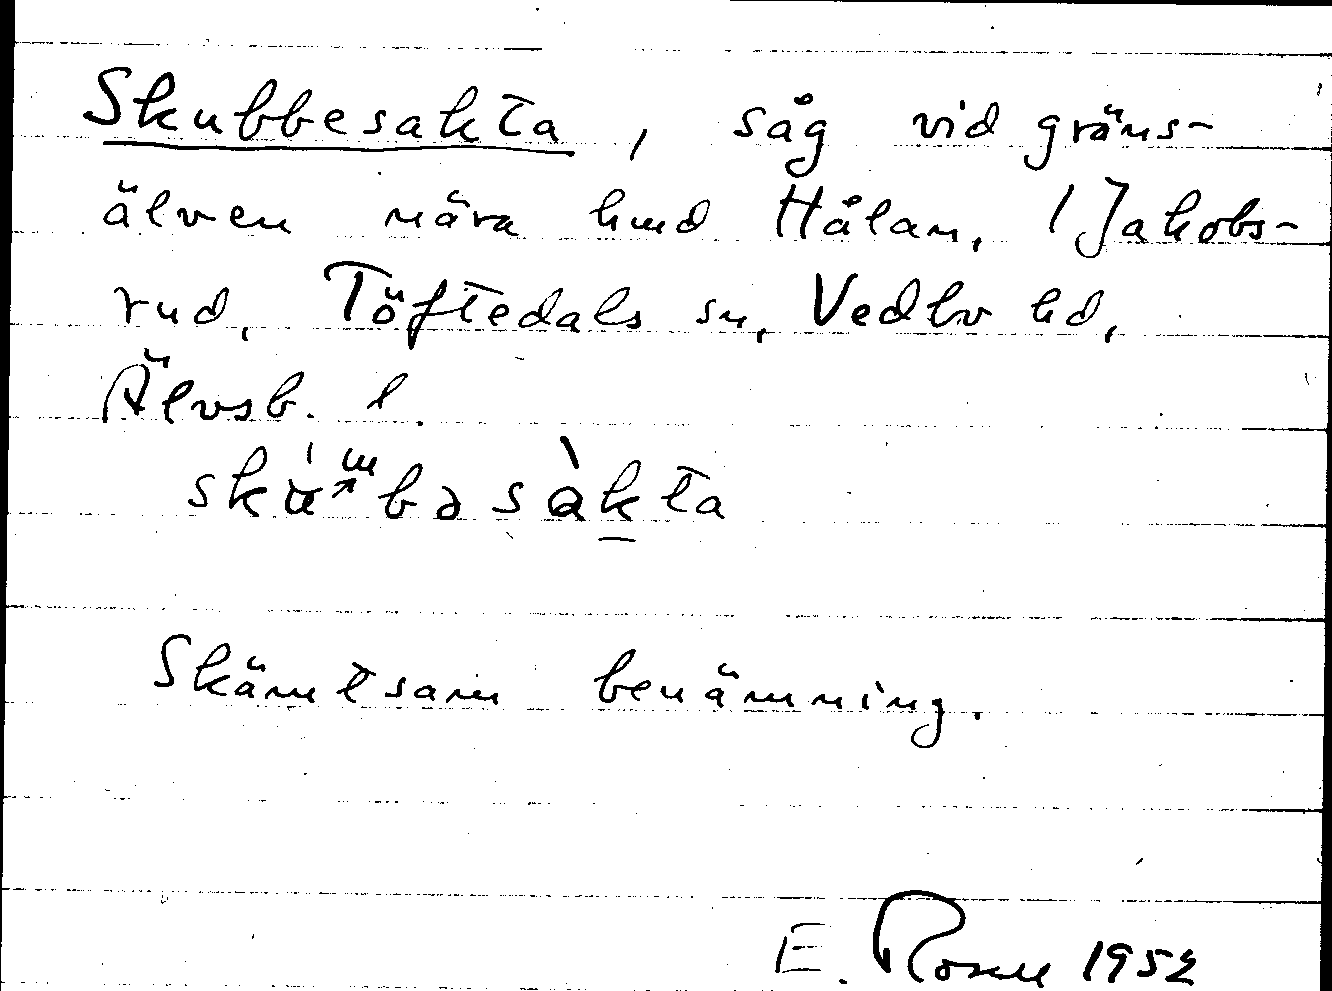 Skubbesakta, såg vid gräns-
älven nära hmd Hålan, 1 Jakobs-
rud, Töftedals sn, Vedbo hd,
Älvsb. l.
Skämtsam benämning.
E. 1952